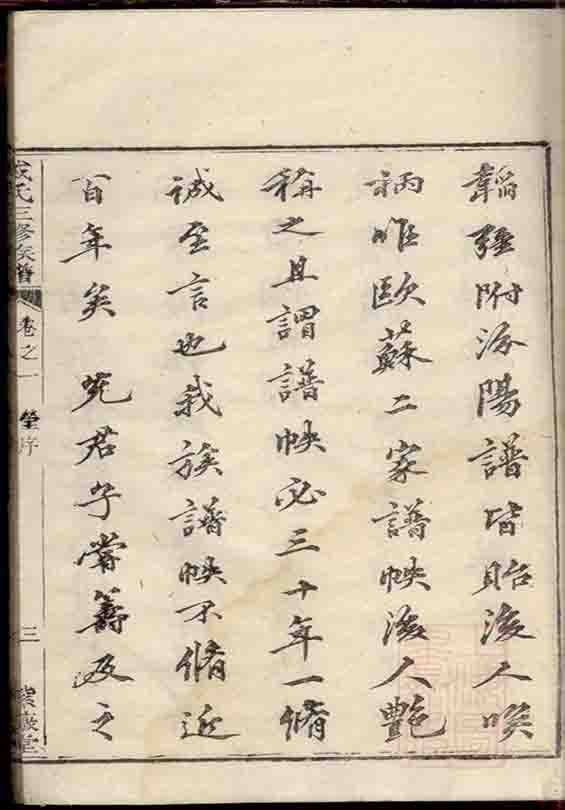 韜強附汾陽譜皆貽後人咲
柄唯歐蘇二家譜帙後人艷
稱之且謂譜帙必三十年一脩
誠至言也我族譜帙不脩近
百年矣 先君子嘗籌及之
氏三修族譜 卷之一 序 三 堂